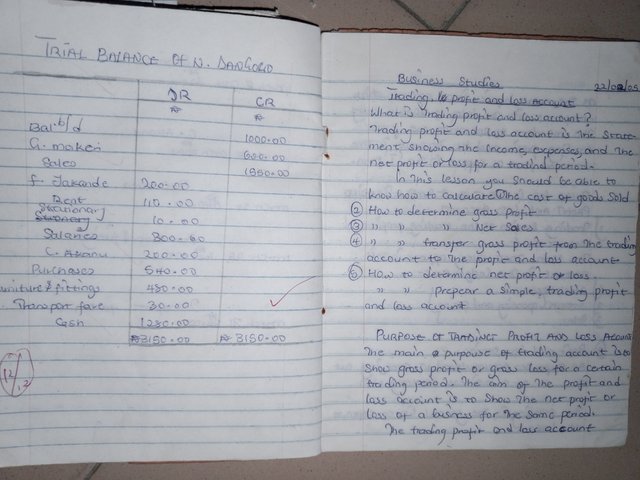 TRIAL BALANCE OF N. DANGORO
DR CR
₦ ₦
Bal. b/d 1000.00
G. maken 600.00
Sales 1550.00
F. Jakande 200.00
Rent 110.00
Stationary 10.00
Salaries 300.00
C. Akanu 200.00
Purchases 540.00
urniture & fittings 480.00
Transport fare 30.00
Cash 1280.00
₦3150.00 ₦3150.00
12/12
Business Studies 22/02/05
Trading, & profit and loss Account
What is Trading profit and loss account?
Trading profit and loss account is The State
ment showing the Income, expenses, and The
net profit or loss, for a trading period.
In This lesson you should be able to
know how to calculate ① The cost of goods Sold
② How to determine gross profit
③ " " " Net Sales
④ " " transfer gross profit from The trading
account to The profit and loss account
⑤ How to determine net profit or loss
" " prepear a simple, trading profit
and loss account
PURPOSE OF TRADING PROFIT AND LOSS Account
The main purpouse of trading account is to
show gross profit or gross loss for a certain
trading period. The aim of The profit and
loss account is to show The net profit or
loss of a business for The same period.
The trading profit and loss account